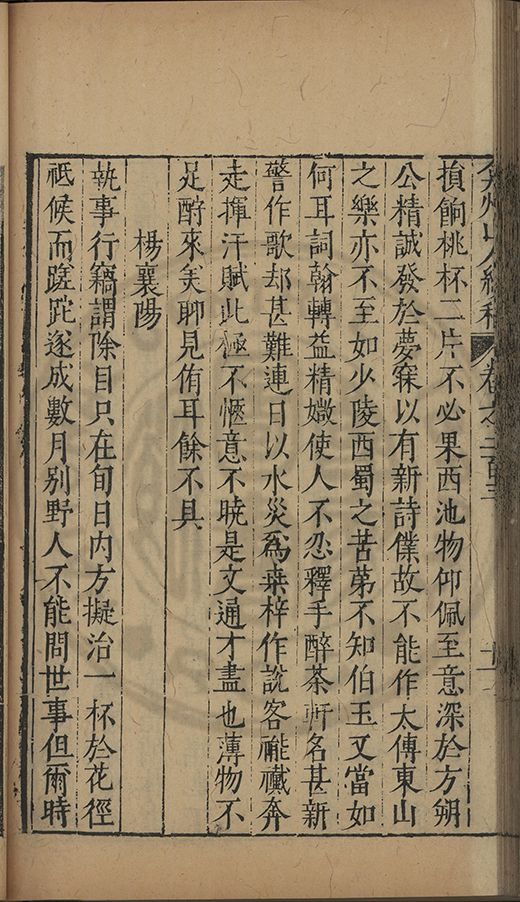 弇州山人續稿 卷之二百三
損餉桃杯二片不必果西池物仰佩至意深於方朔
公精誠發於夢寐以有新詩僕故不能作太傅東山
之樂亦不至如少陵西蜀之苦苐不知伯玉又當如
何耳詞翰轉益精媺使人不忍釋手醉茶軒名甚新
警作歌却甚難連日以水災爲桒梓作說客襶奔
走揮汗賦此極不愜意不曉是文通才盡也薄物不
足酧來美聊見侑耳餘不具
楊襄陽
執事行籍謂除目只在旬日内方擬治一杯於花徑
祗候而蹉跎遂成數月别野人不能問世事但爾時